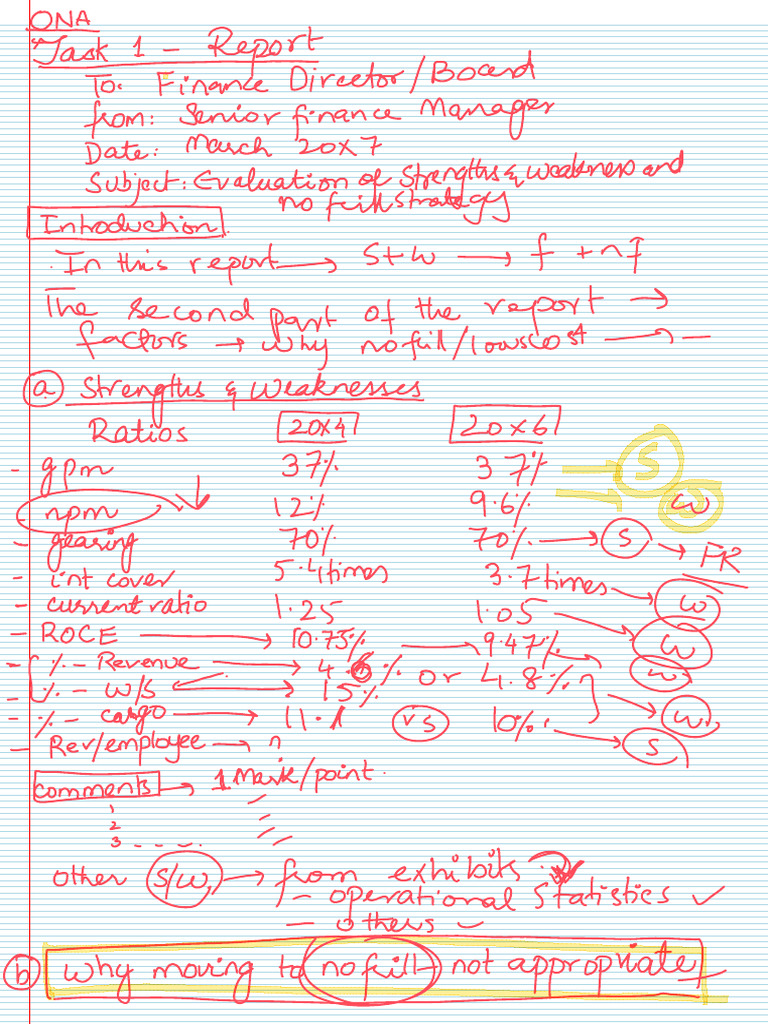 ONA
Task 1 - Report
To: Finance Director/Board
from: Senior finance Manager
Date: March 20x7
Subject: Evaluation of Strengths & weakness and
no frill strategy
Introduction
In this report → S+W → f + nf
The second part of the report →
factors → why no frill/lowcost → —
(a) Strengths & Weaknesses
Ratios 20x4 20x6
- gpm 37% 37% → S
- npm ↓ 12% 9.6% → W
- gearing 70% 70% → S → FR
- int cover 5.4times 3.7times → W
- current ratio 1.25 1.05 → W
- ROCE → 10.75% → 9.47% → W
- % - Revenue → 4.8% or 4.8%
- % - W/S → 15% → W
- % - cargo → 11.1 vs 10%. → S
- Rev/employee →
comments → 1 Mark/point.
1
2
3 - - - -
other S/W → from exhibits
- operational Statistics ✓
- others ✓
(b) why moving to no frill not appropriate